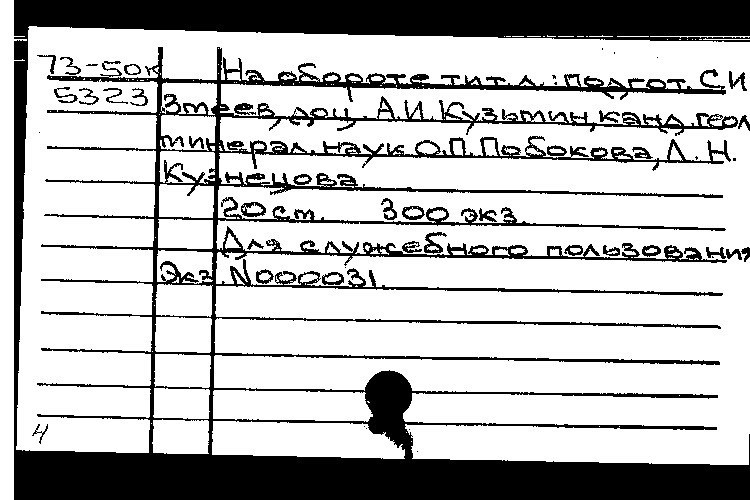 73-50к На обороте тит.л.: подгот. С.И
5323 Зтеев, доц. А.И. Кузьмин, канд. геол
минерал. наук О.П. Побокова, Л. Н.
Кузнецова.
20 ст. 300 экз.
Для служебного пользования
Экз. N000031.
4